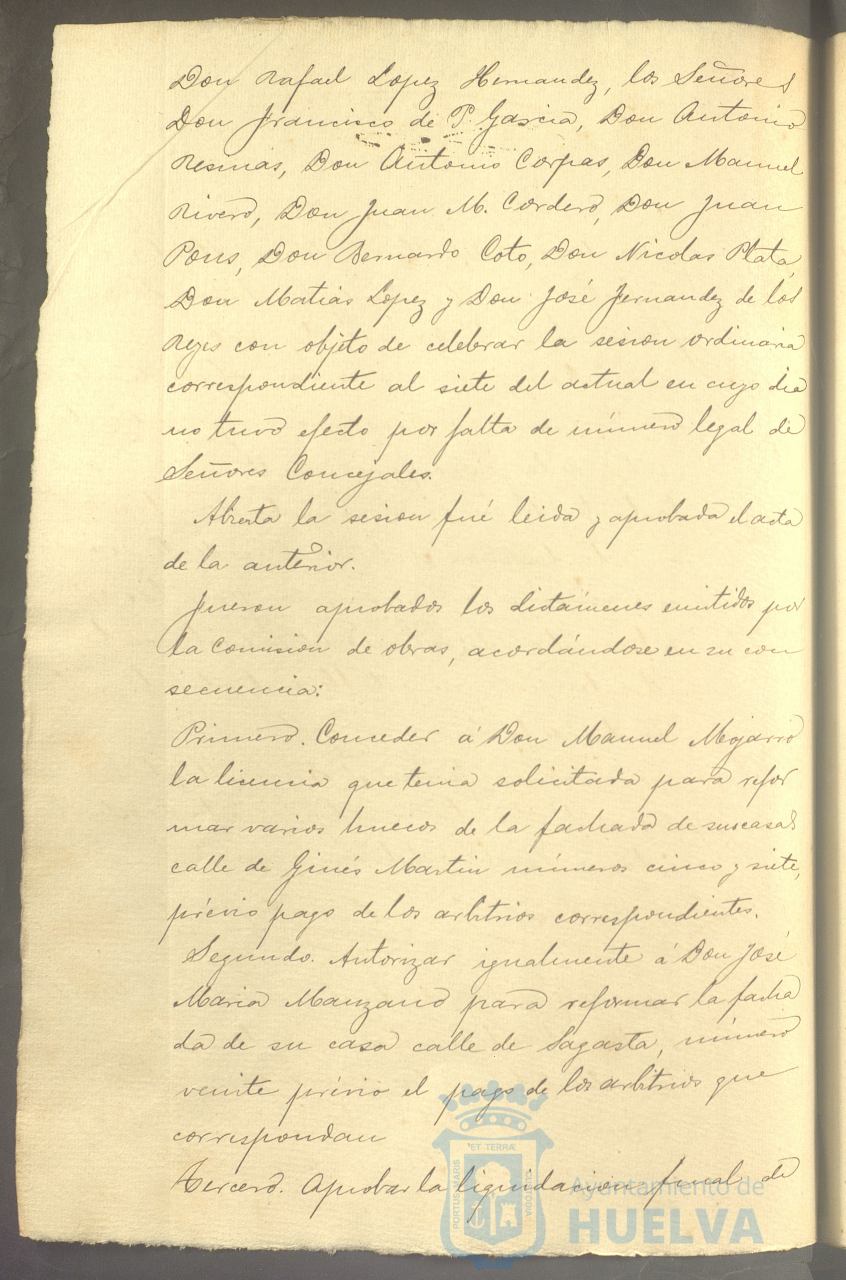 Don Rafael Lopez Hernandez, los Señores
Don Francisco de P. Garcia, Don Antonio
Resinas, Don Antonio Corpas, Don Manuel
Rivero, Don Juan M. Cordero, Don Juan
Pons, Don Bernardo Coto, Don Nicolas Plata,
Don Matias Lopez y Don José Fernandez de los
Reyes con objeto de celebrar la sesion ordinaria
correspondiente al siete del actual en cuyo dia
no tuvo efecto por falta de número legal de
Señores Concejales.
Abierta la sesion fué leida y aprobada el acta
de la anterior.
Fueron aprobados los dictámenes emitidos por
la Comision de obras, acordándose en su con
secuencia:
Primero. Conceder á Don Manuel Mojarro
la licencia que tenia solicitada para refor
mar varios huecos de la fachada de sus casas
calle de Ginés Martin números cinco y siete,
prévio pago de los arbitrios correspondientes.
Segundo. Autorizar igualmente á Don José
Maria Manzano para reformar la facha
da de su casa calle de Sagasta, número
veinte prévio el pago de los arbitrios que
correspondan
Tercero. Aprobar la liquidacion final de
ET TERRÆ
PORTUS MARIS
CUSTODIA
Ayuntamiento de
HUELVA